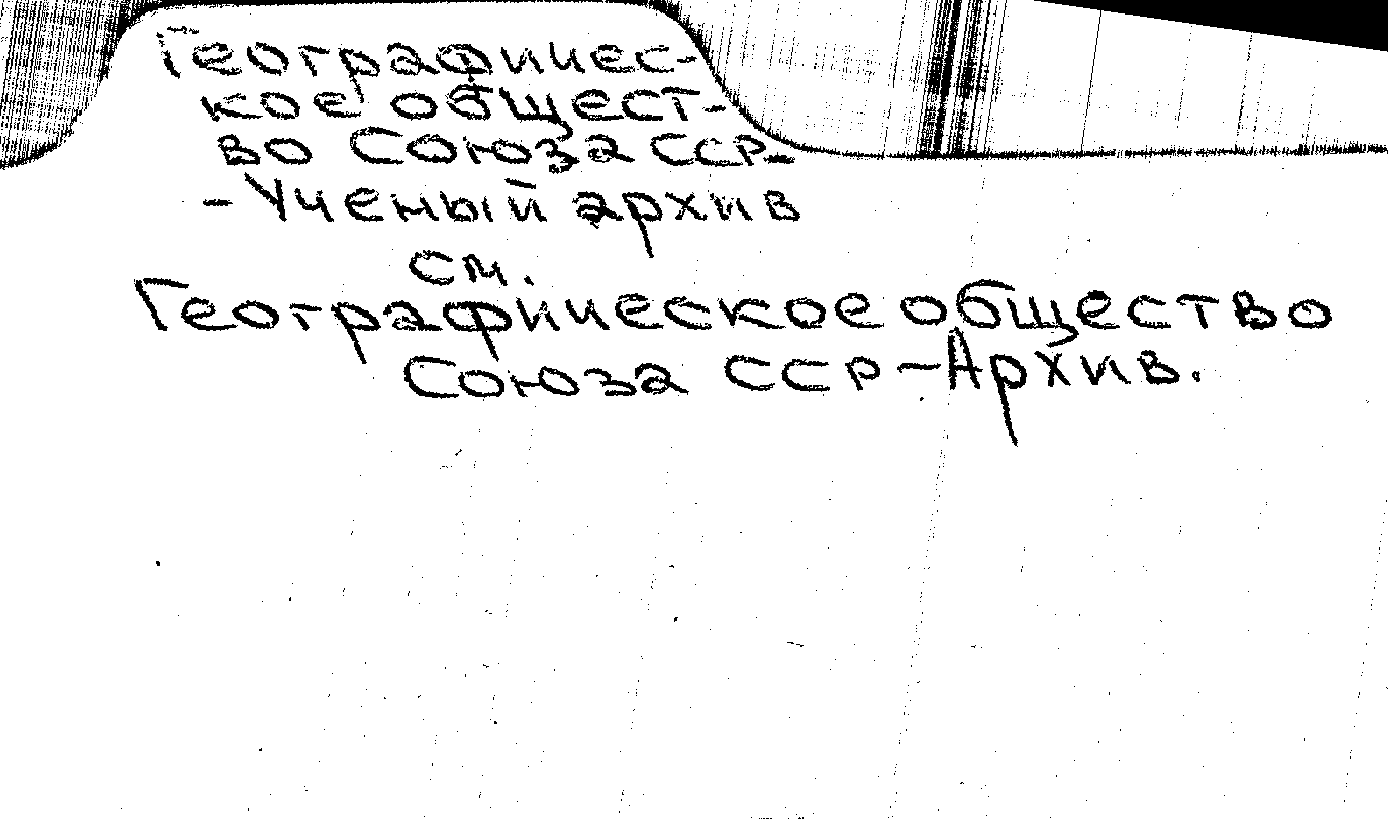 Географичес-
кое общест-
во Союза ССР-
- Ученый архив
см.
Географическое общество
Союза ССР - Архив.